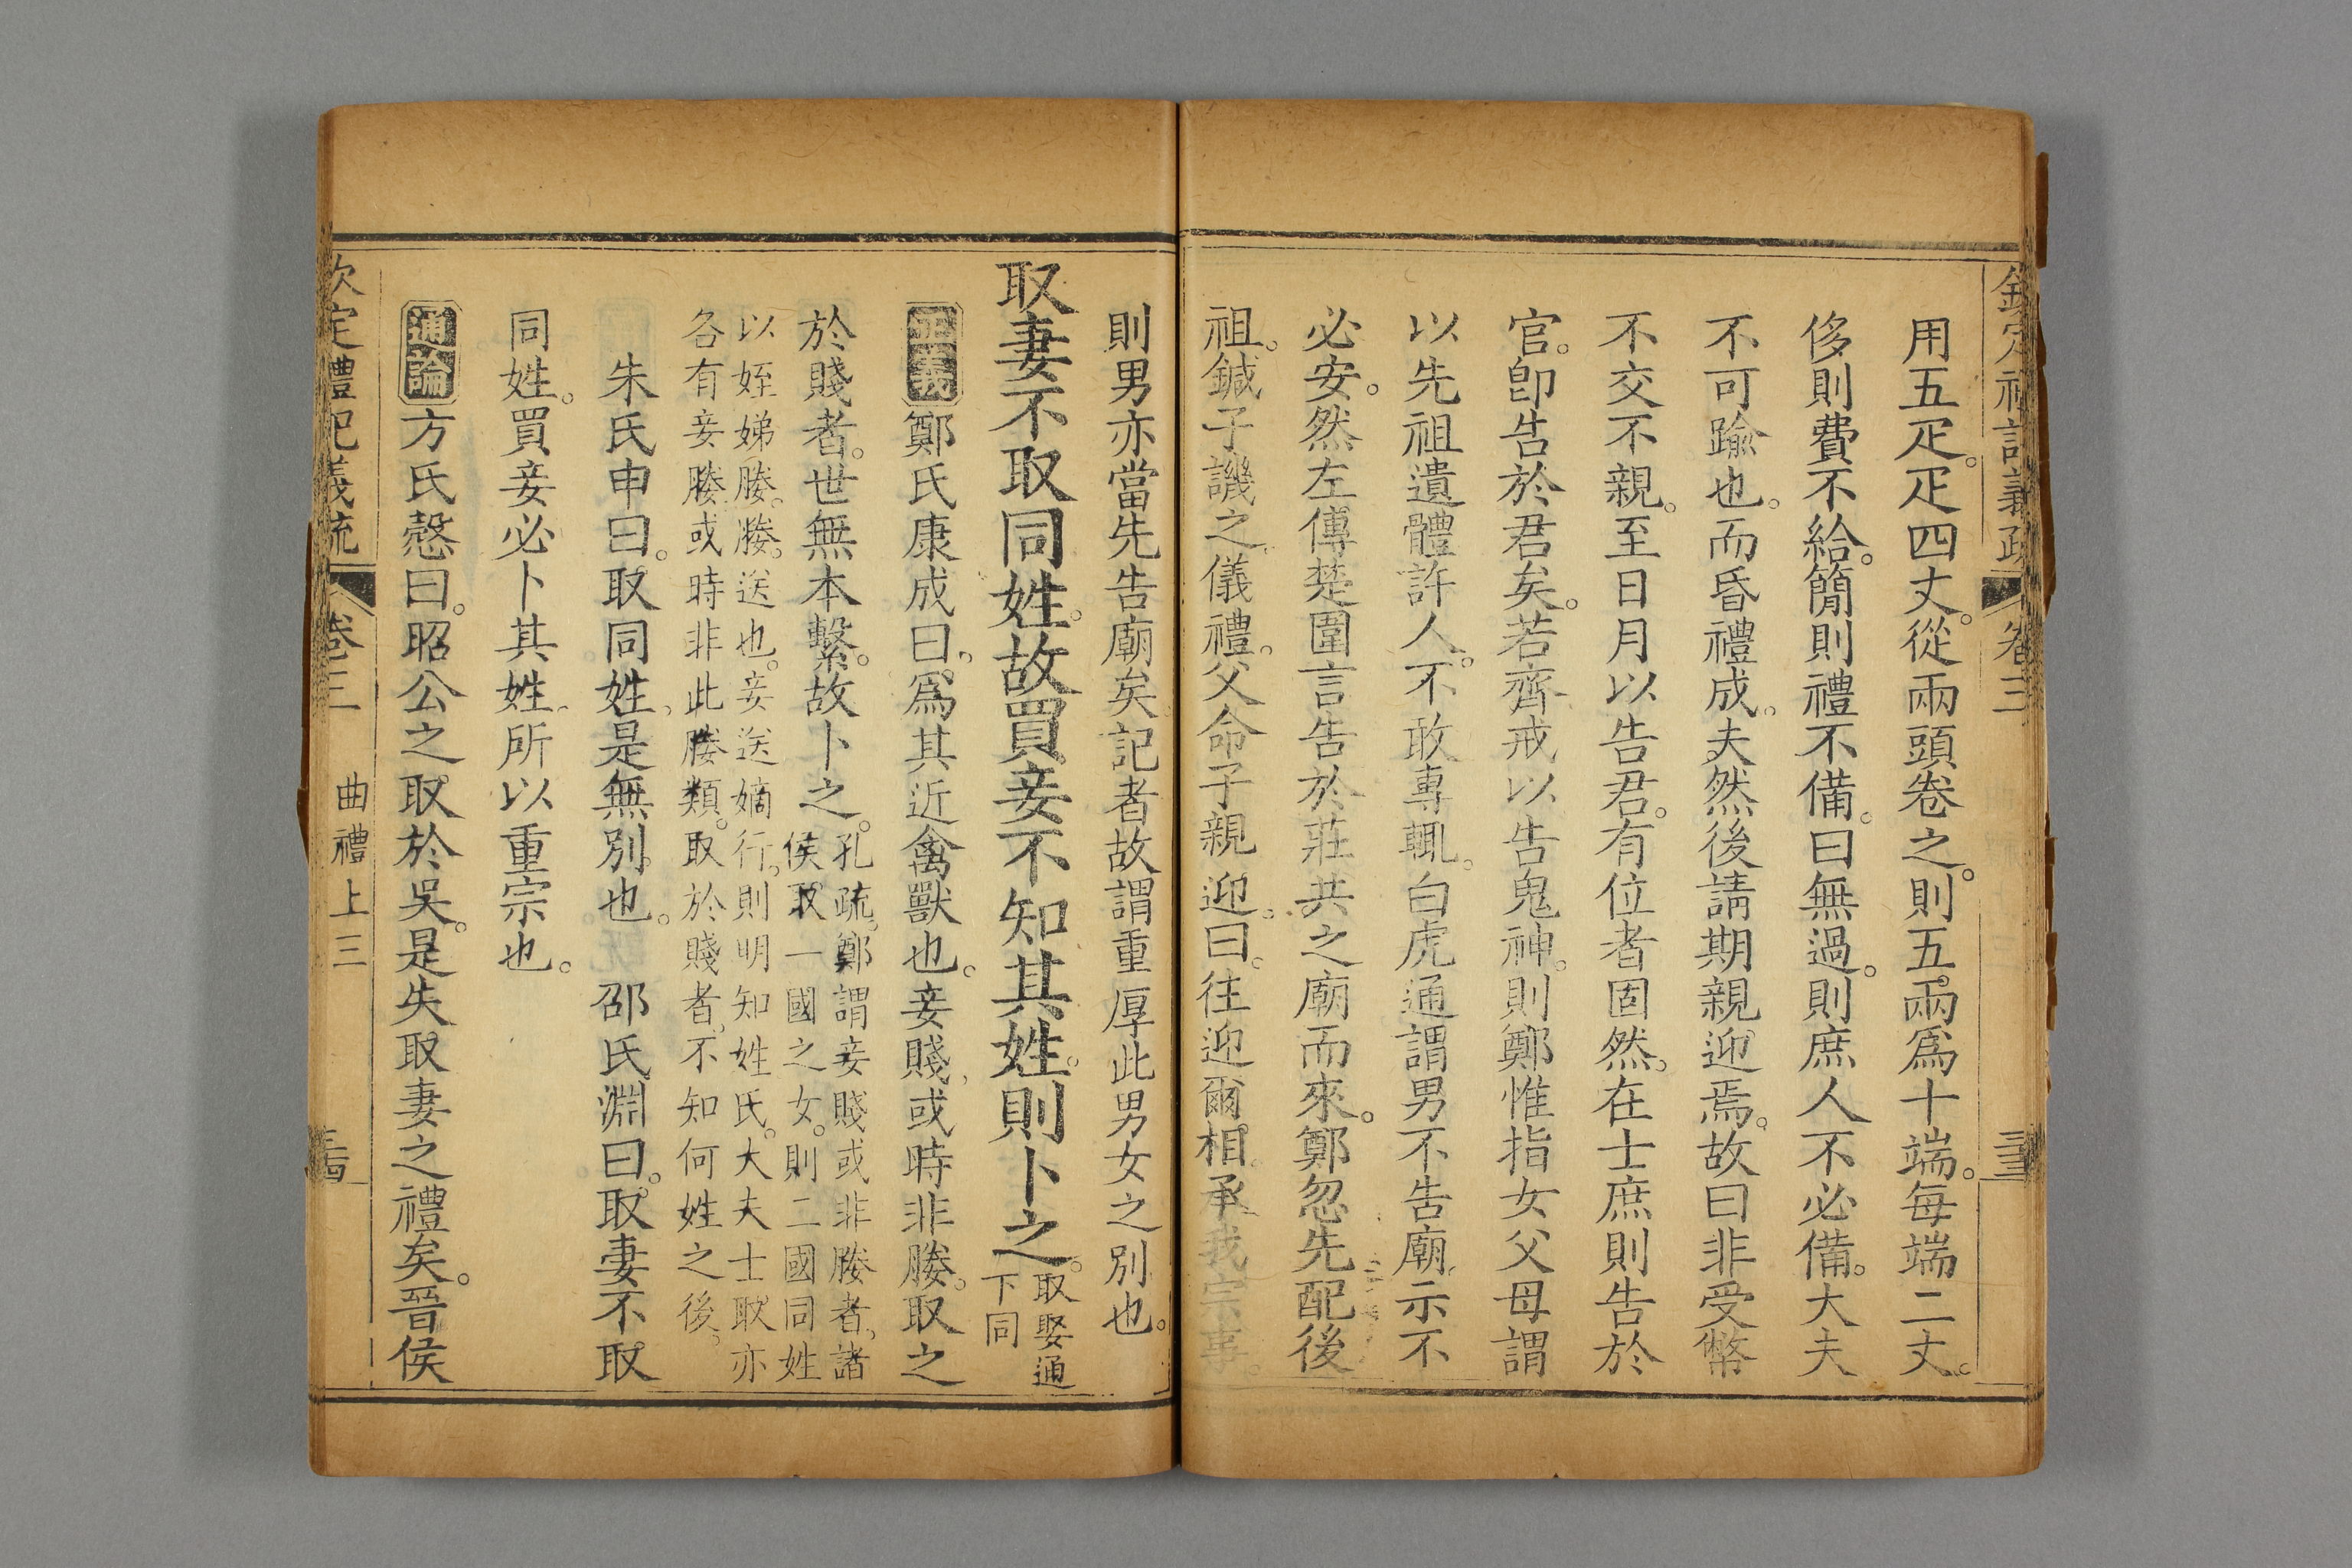 欽定禮記義疏 卷三
用五疋疋四丈從兩頭卷之則五兩爲十端每端二丈
侈則費不給簡則禮不備曰無過則庶人不必備大夫
不可踰也而昏禮成夫然後請期親迎焉故曰非受幣
不交不親至日月以告君有位者固然在士庶則告於
官卽告於君矣若齊戒以告鬼神則鄭惟指女父母謂
以先祖遺體許人不敢專輒白虎通謂男不告廟示不
必安然左傳楚圍言告於莊共之廟而來鄭忽先配後
祖鍼子譏之儀禮父命子親迎曰往迎爾相承我宗事
則男亦當先告廟矣記者故謂重厚此男女之別也
取妻不取同姓故買妾不知其姓則卜之 取娶通
下同
正義 鄭氏康成曰爲其近禽獸也妾賤或時非媵取之
於賤者世無本繫故卜之 孔疏鄭謂妾賤或非媵者諸
侯取一國之女則二國同姓
以姪娣媵媵送也妾送嫡行則明知姓氏大夫士取亦
各有妾媵或時非此媵類取於賤者不知何姓之後
朱氏申曰取同姓是無別也 邵氏淵曰取妻不取
同姓買妾必卜其姓所以重宗也
通論 方氏慤曰昭公之取於吳是失取妻之禮矣晉侯
欽定禮記義疏 卷三 曲禮上三